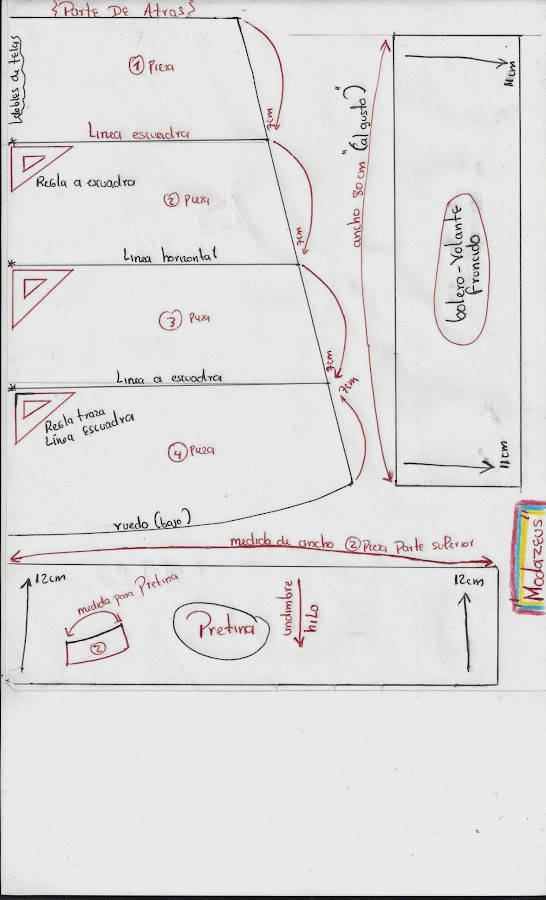 {Parte De Atras}
dobles de telas
① Pieza
7cm
Linea escuadra
Regla a escuadra
② Pieza
7cm
Linea horizontal
③ Pieza
7cm
Linea a escuadra
7cm
Regla traza
Línea Escuadra
④ Pieza
ruedo (bajo)
ancho 80cm "(al gusto)"
11cm
bolero-Volante
fruncido
11cm
medida de ancho ② Pieza Parte Superior
ModaZeus
12cm
medida para Pretina
②
Pretina
undimbre
hilo
12cm